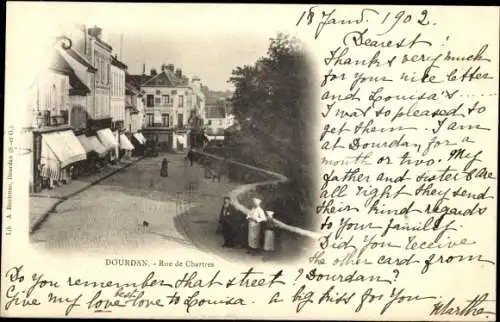 18 Janv. 1902.
Dearest!
Thanks very much
for your nice letter
and Louisa's...
I was so pleased to
get them. I am
at Dourdan, for a
month or two. My
father and sister are
all right they send
their kind regards
to your family.
Did you receive
the other card from
Dourdan?
DOURDAN. - Rue de Chartres
Do you remember that street?
Give my best love to Louisa. a big kiss for you
Marthe.
Lib. A. Boutroue, Dourdan (S.-et-O.)